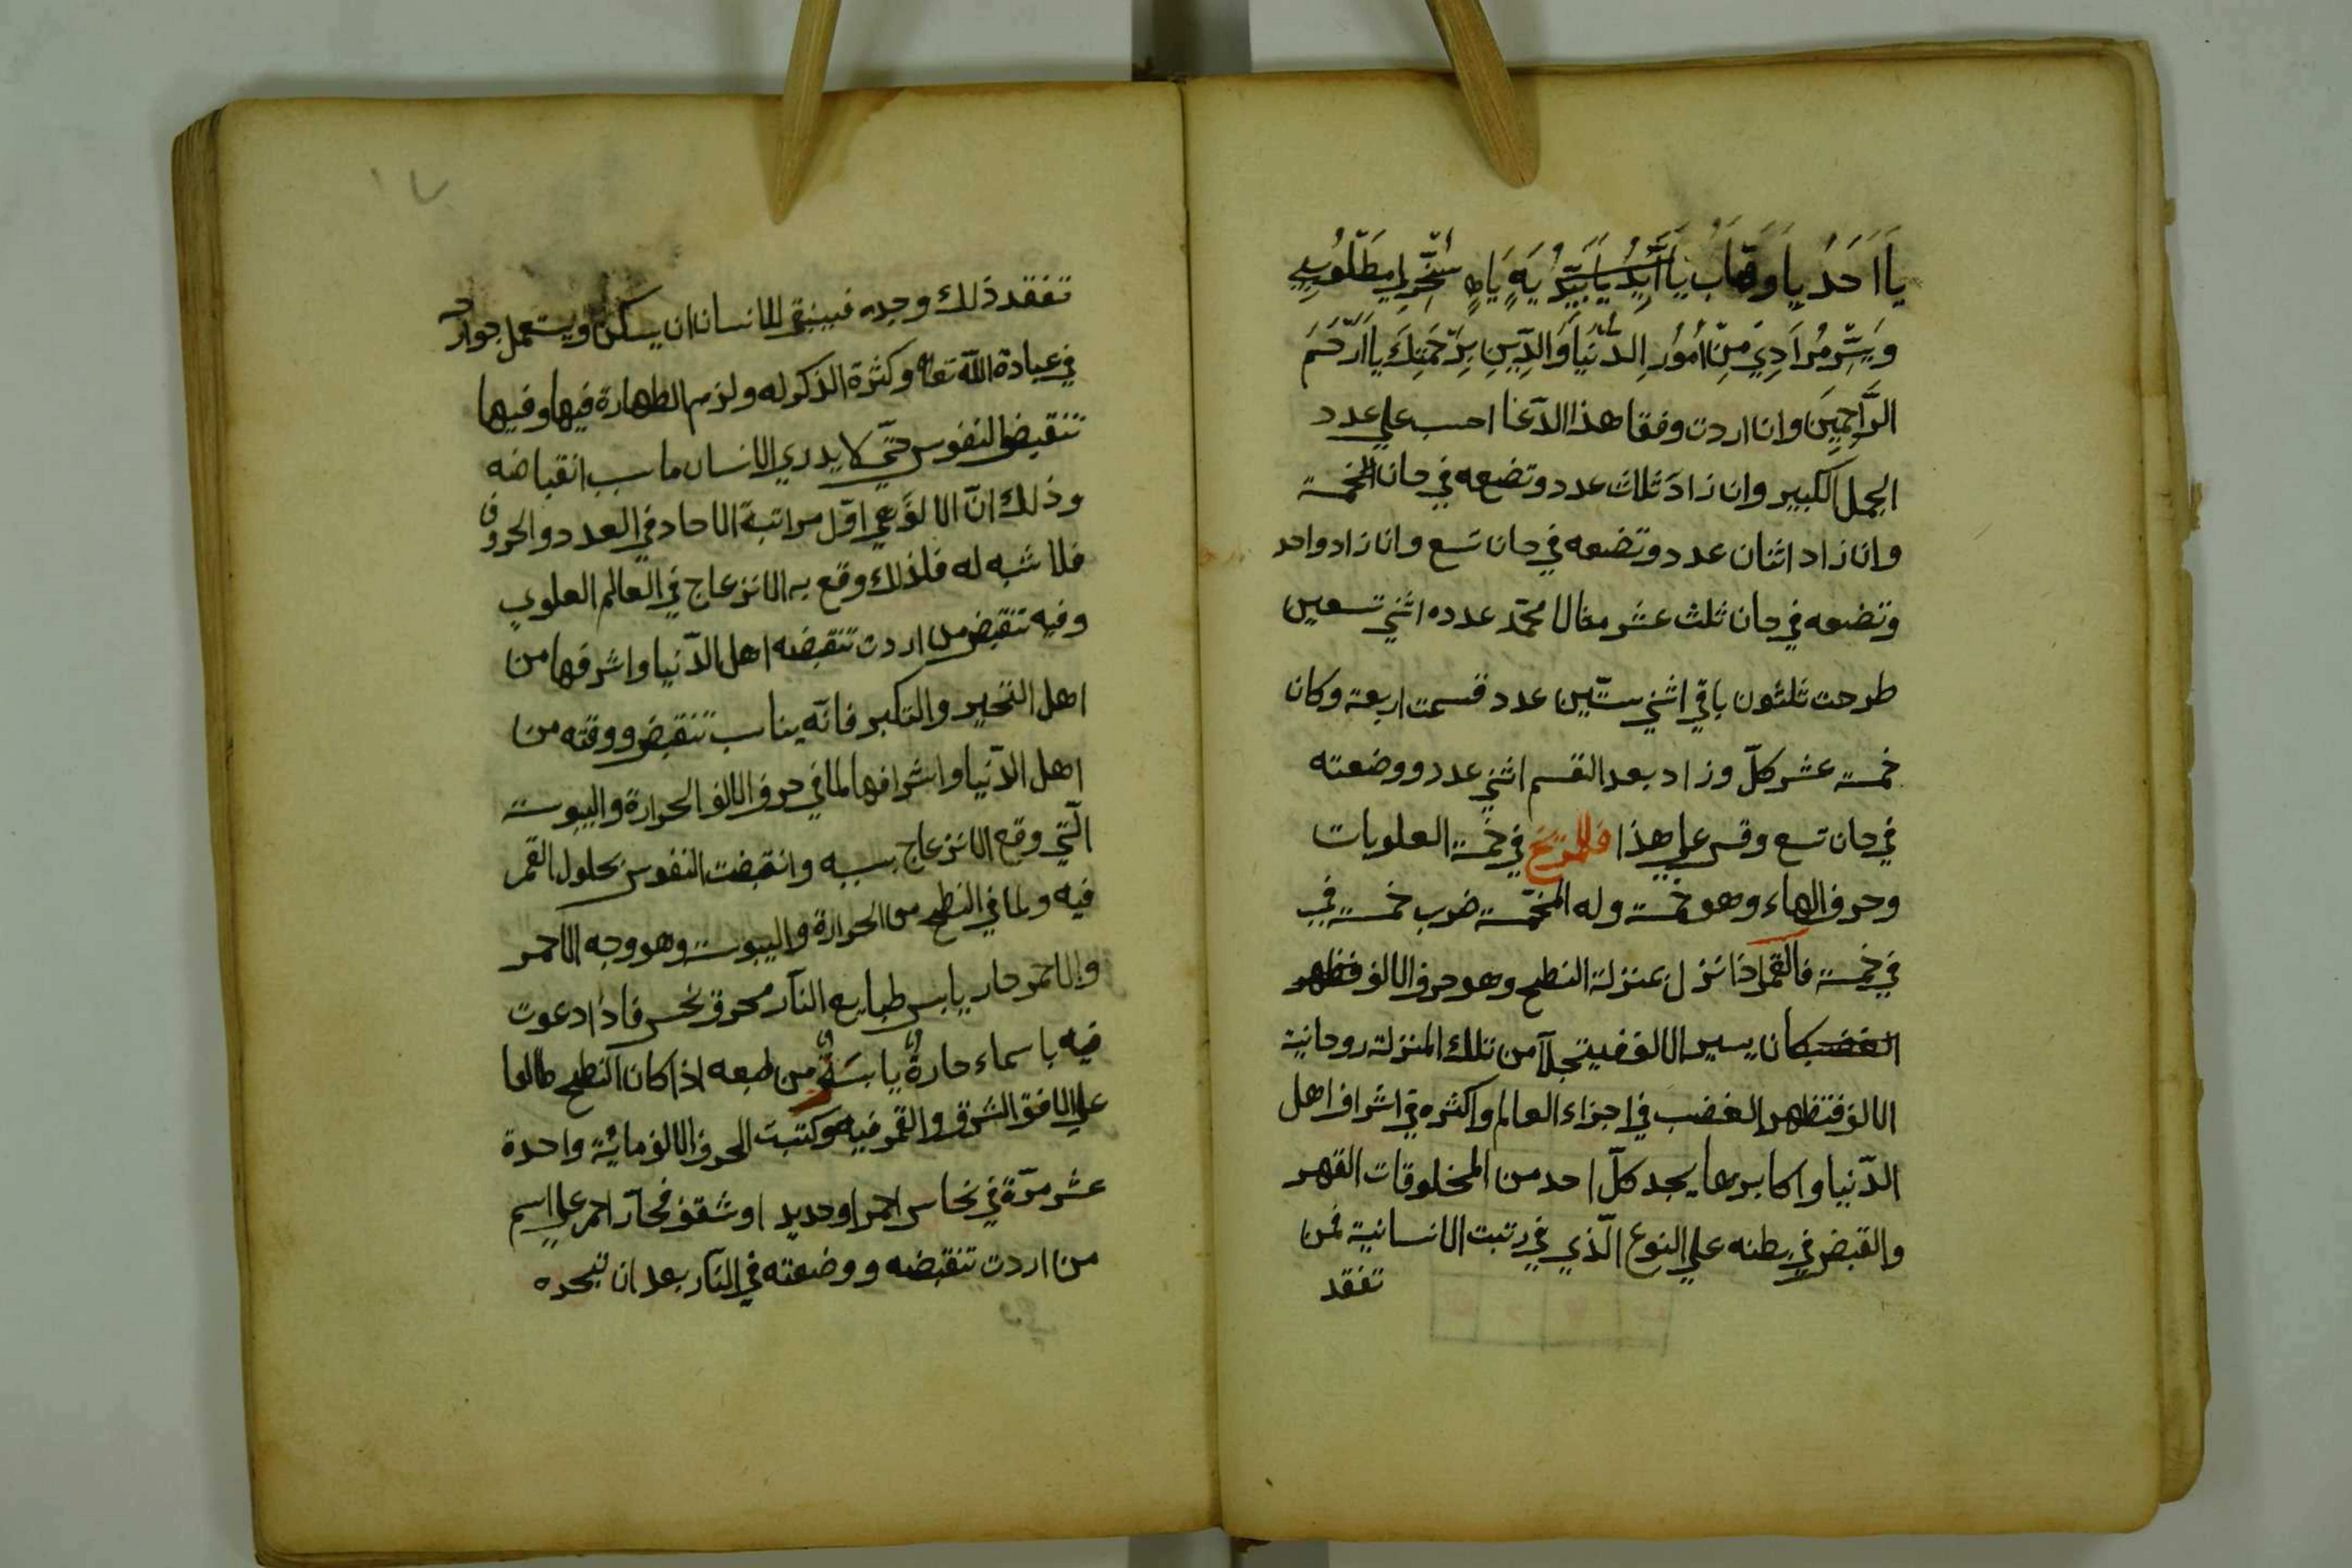 يَا اَحَدُ يَا وَهَّابُ يَا اَبَدُ يَا يَهٍ يَاهٍ سَخِّرْ لِي مَطْلُوبِي
وَيَسِّرْ مُرَادِي مِنْ اُمُورِ الدُّنْيَا وَالدِّينِ بِرَحْمَتِكَ يَا اَرْحَمَ
الرَّاحِمِينَ وان اردت وفقا هذا الدّعا احسب علي عدد
الجمل الكبير وان زاد ثلاث عدد وتضعه في حان الخمسة
وان زاد اثنان عدد وتضعه في حان تسع وان زاد واحد
وتضعه في حان ثلث عشر مثالا محمّد عدده اثني تسعين
طرحت ثلثون باقي اثني ستّين عدد قسمت اربعة وكان
خمسة عشر كلّ وزاد بعد القسم اثني عدد ووضعته
في حان تسع وقس علي هذا فللمرّيخ في خمسة العلويات
وحروف الهاء وهو خمسة وله المخمّسة ضرب خمسة في
في خمسة فالقمر اذا نزل بمنزلة النطح وهو حروف الالف فظهر
الغضب كان يسير الالف فيتجلّا من تلك المنزلة روحانية
الالف فتظهر الغضب في اجزاء العالم واكثره في اشراف اهل
الدّنيا واكابرها يجد كلّ احد من المخلوقات القهر
والقبض في بطنه علي النوع الّذي في رتبت الانسانية فمن
تفقد
١٧
تفقد ذلك وجده فينبغي للانسان ان يسكن ويستعمل جوارحه
في عبادة اللّه تعا وكثرة الذكر له ولزم الطهارة فيها وفيها
تنقبض النفوس حتّي لا يدري الانسان ما سبب انقباضه
وذلك انّ الالف هي اوّل مراتبة الاحاد في العدد والحروف
فلا شبه له فلذلك وقع به الانزعاج في العالم العلوي
وفيه تنقبض من اردت تنقبضه اهل الدّنيا واشرفها من
اهل التجبر والتكبر فانّه يناسب تنقبض ووقته من
اهل الدّنيا واشرافها لما في حروف الالف الحرارة واليبوسة
الّتي وقع الانزعاج بسببه وانقبضت النفوس بحلول القمر
فيه ولما في النطح من الحرارة واليبوسة وهو وجه الاحمر
والاحمر حار يابس طبايع النّار محرق نحس فاذا دعوت
فيه باسماء حارة يابسة من طبعه اذا كان النطح طالعا
علي الافق الشرق والقمر فيه وكتبت الحرف الالف مائة واحدة
عشر مرّة في نحاس احمر او حديد او شقف فخّار احمر علي اسم
من اردت تنقبضه ووضعته في النّار بعد ان تبخره